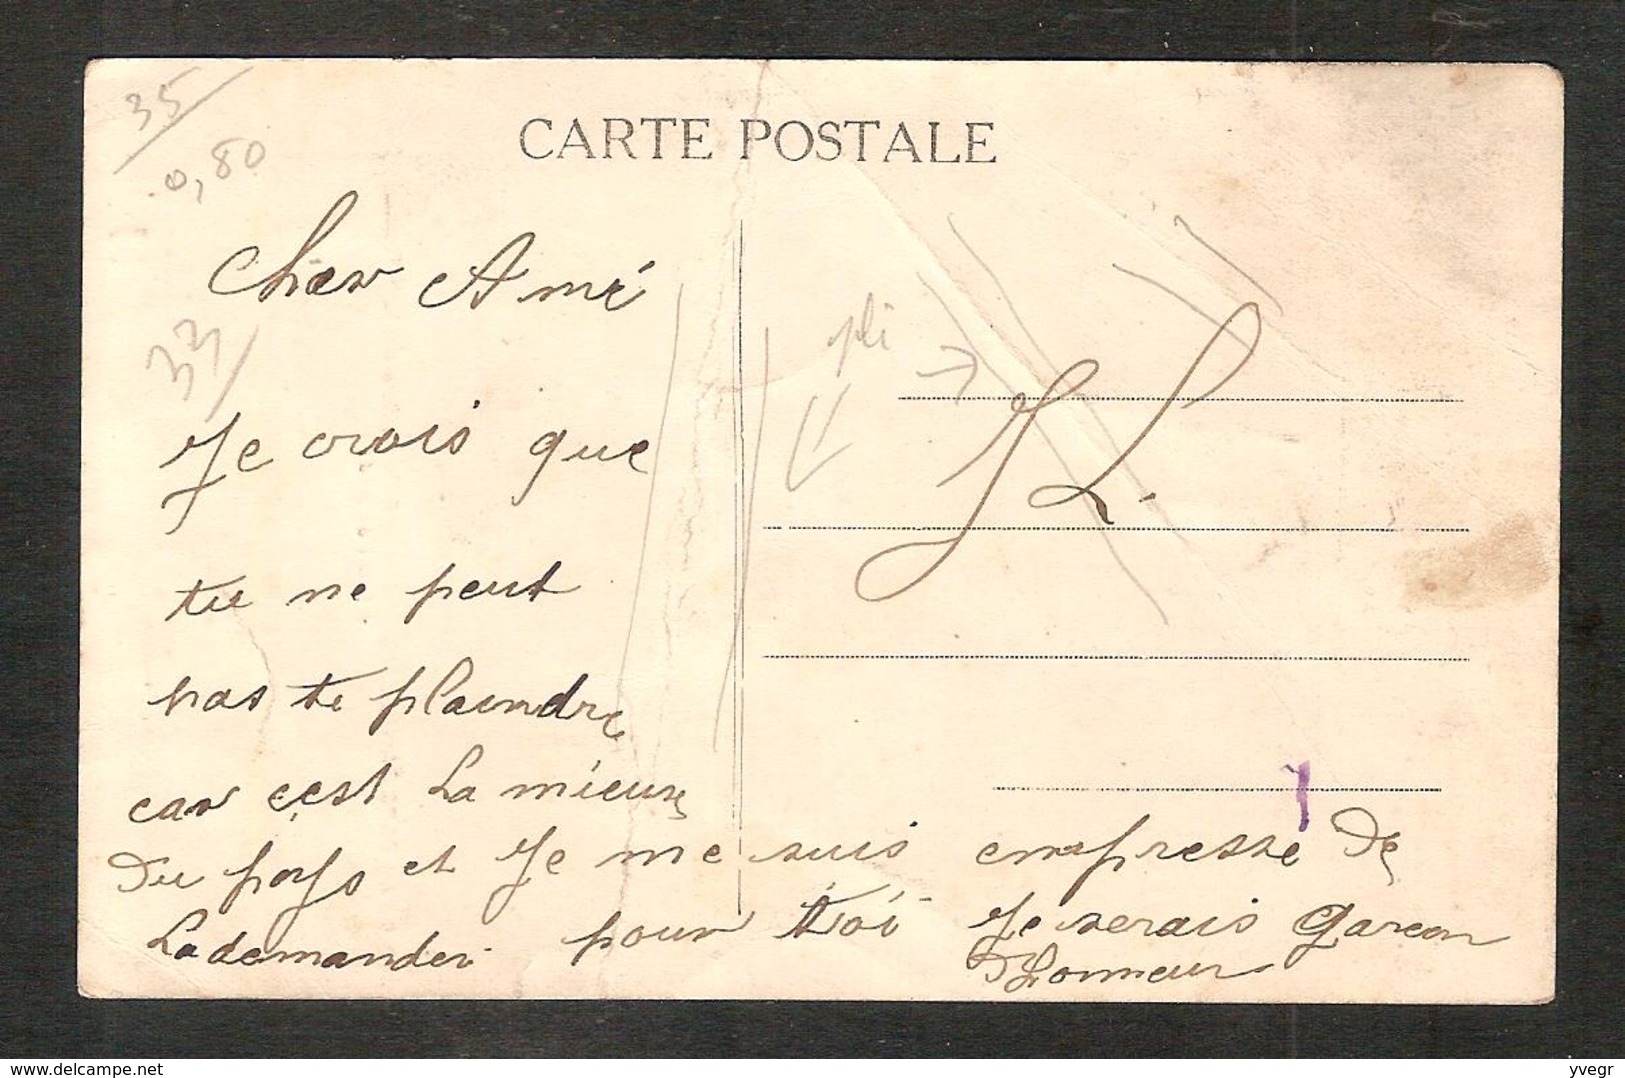 35
0,80
CARTE POSTALE
Cher Amé
33
pli
Je crois que
J L.
tu ne peut
pas te plaindre
car cest La mieuse
Du pays et Je me suis empressé De
La demander pour toi Je serais Garcon
D'honneur
www.delcampe.net
yvegr